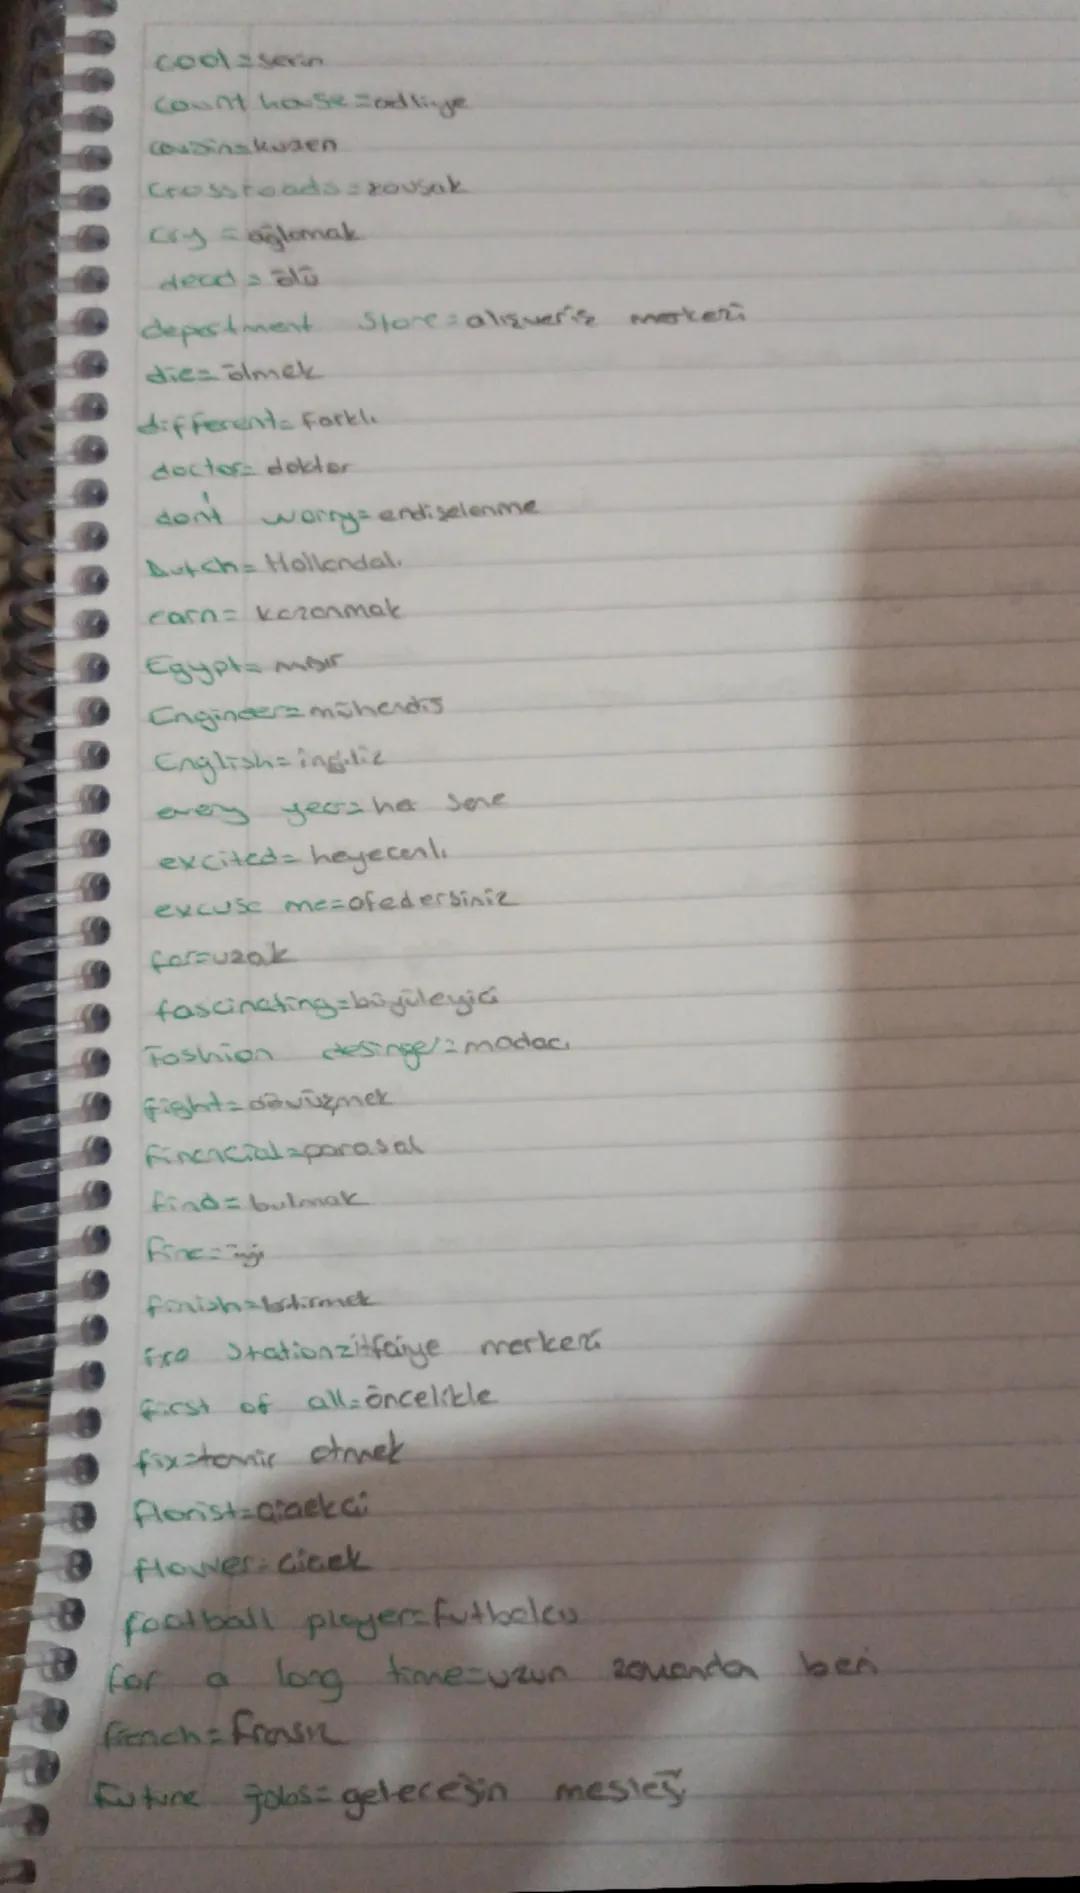 cool=serin
count house=adliye
cousin=kuzen
crossroads=kavşak
cry=ağlamak
dead=ölü
department store=alışveriş merkezi
die=ölmek
different=farklı
doctor=doktor
don't worry=endişelenme
Dutch=Hollandalı
earn=kazanmak
Egypt=mısır
Engineer=mühendis
English=ingiliz
every year=her sene
excited=heyecanlı
excuse me=afedersiniz
far=uzak
fascinating=büyüleyici
Fashion desinger=modacı
fight=dövüşmek
financial=parasal
find=bulmak
fine=iyi
finish=bitirmek
station=itfaiye merkezi
first of all=öncelikle
fix=tamir etmek
florist=çiçekçi
flower=çicek
football player=futbolcu
for a long time=uzun zamandan beri
french=fransız
future jobs=geleceğin mesleği